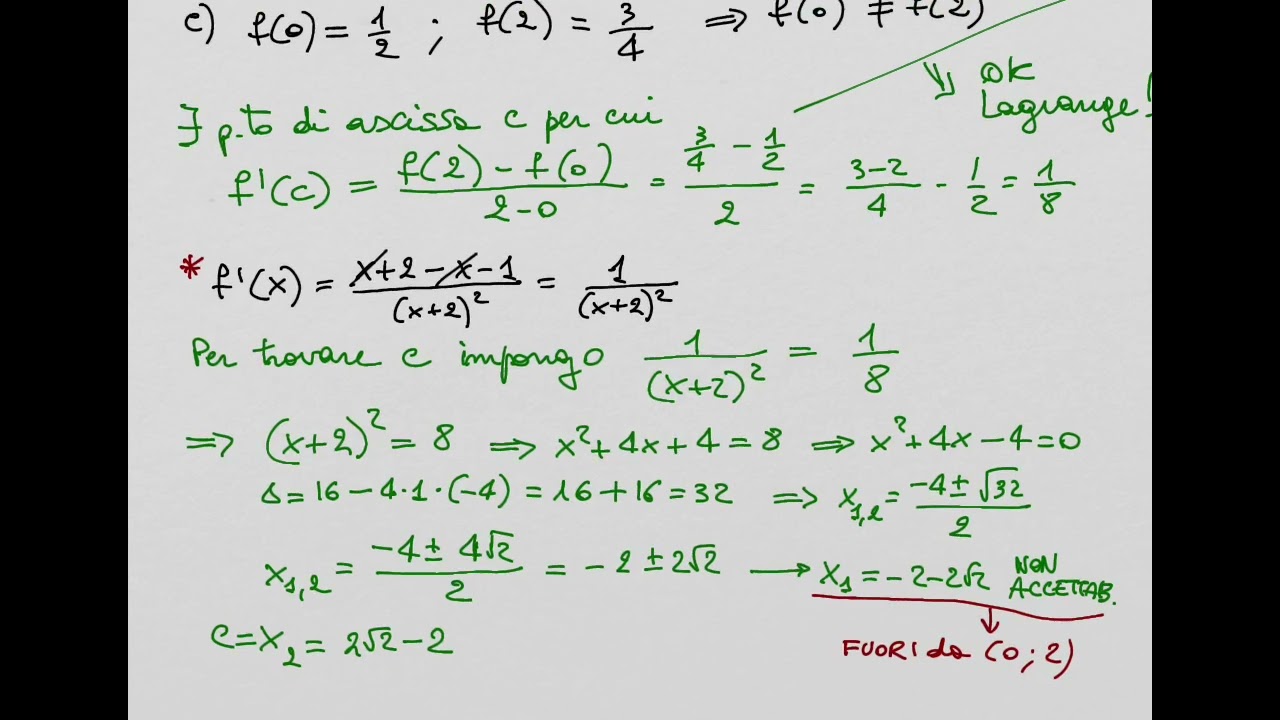 c) f(0) = 1/2 ; f(2) = 3/4 ⇒ f(0) ≠ f(2)
⇓ OK Lagrange!
∃ p.to di ascissa c per cui
f'(c) = (f(2) - f(0))/(2-0) = (3/4 - 1/2)/2 = (3-2)/4 · 1/2 = 1/8
* f'(x) = (x+2-x-1)/(x+2)² = 1/(x+2)²
Per trovare c impongo 1/(x+2)² = 1/8
⇒ (x+2)² = 8 ⇒ x²+4x+4=8 ⇒ x²+4x-4=0
Δ=16-4·1·(-4)=16+16=32 ⇒ x₁,₂ = (-4±√32)/2
x₁,₂ = (-4±4√2)/2 = -2±2√2 → x₁=-2-2√2 NON ACCETTAB.
c=x₂=2√2-2
FUORI da (0;2)